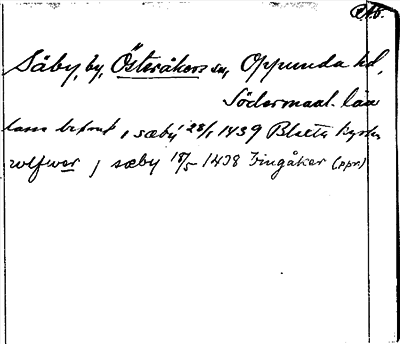 Säby, by, Österåkers sn, Oppunda hd,
Södermanl. län
lass i sæby 28/1 1439 Blacsta kyrka
wlfwer j sæby 18/5 1438 Vingåker (ppr.)